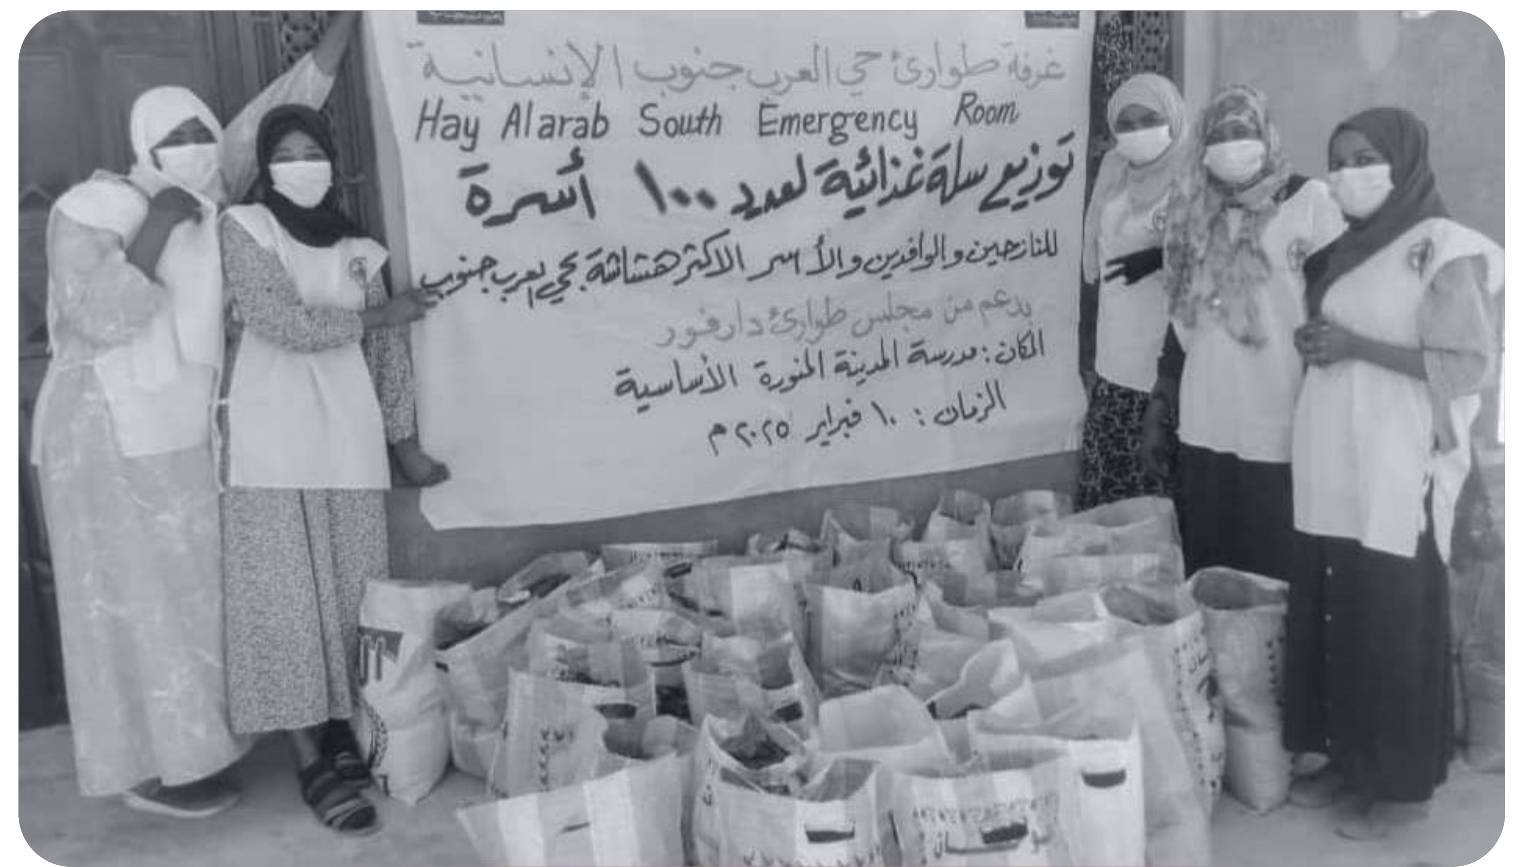 غرفة طوارئ حي العرب جنوب الإنسانية
Hay Alarab South Emergency Room
توزيع سلة غذائية لعدد ١٠٠ أسرة
للنازحين والوافدين والأسر الاكثر هشاشة بحي العرب جنوب
بدعم من مجلس طوارئ دارفور
المكان : مدرسة المدينة المنورة الأساسية
الزمان : ١٠ فبراير ٢٠٢٥ م